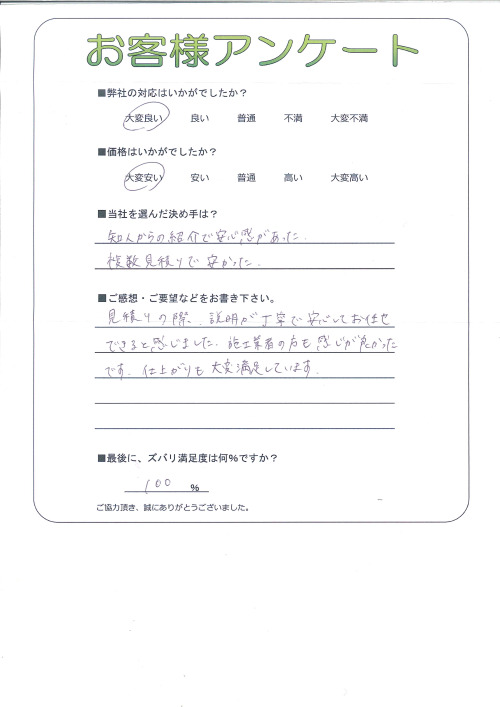 お客様アンケート
■弊社の対応はいかがでしたか？
大変良い 良い 普通 不満 大変不満
■価格はいかがでしたか？
大変安い 安い 普通 高い 大変高い
■当社を選んだ決め手は？
知人からの紹介で安心感があった.
複数見積りで安かった.
■ご感想・ご要望などをお書き下さい。
見積りの際、説明が丁寧で安心してお任せ
できると感じました. 施工業者の方も感じが良かった
です. 仕上がりも大変満足しています.
■最後に、ズバリ満足度は何％ですか？
100 %
ご協力頂き、誠にありがとうございました。